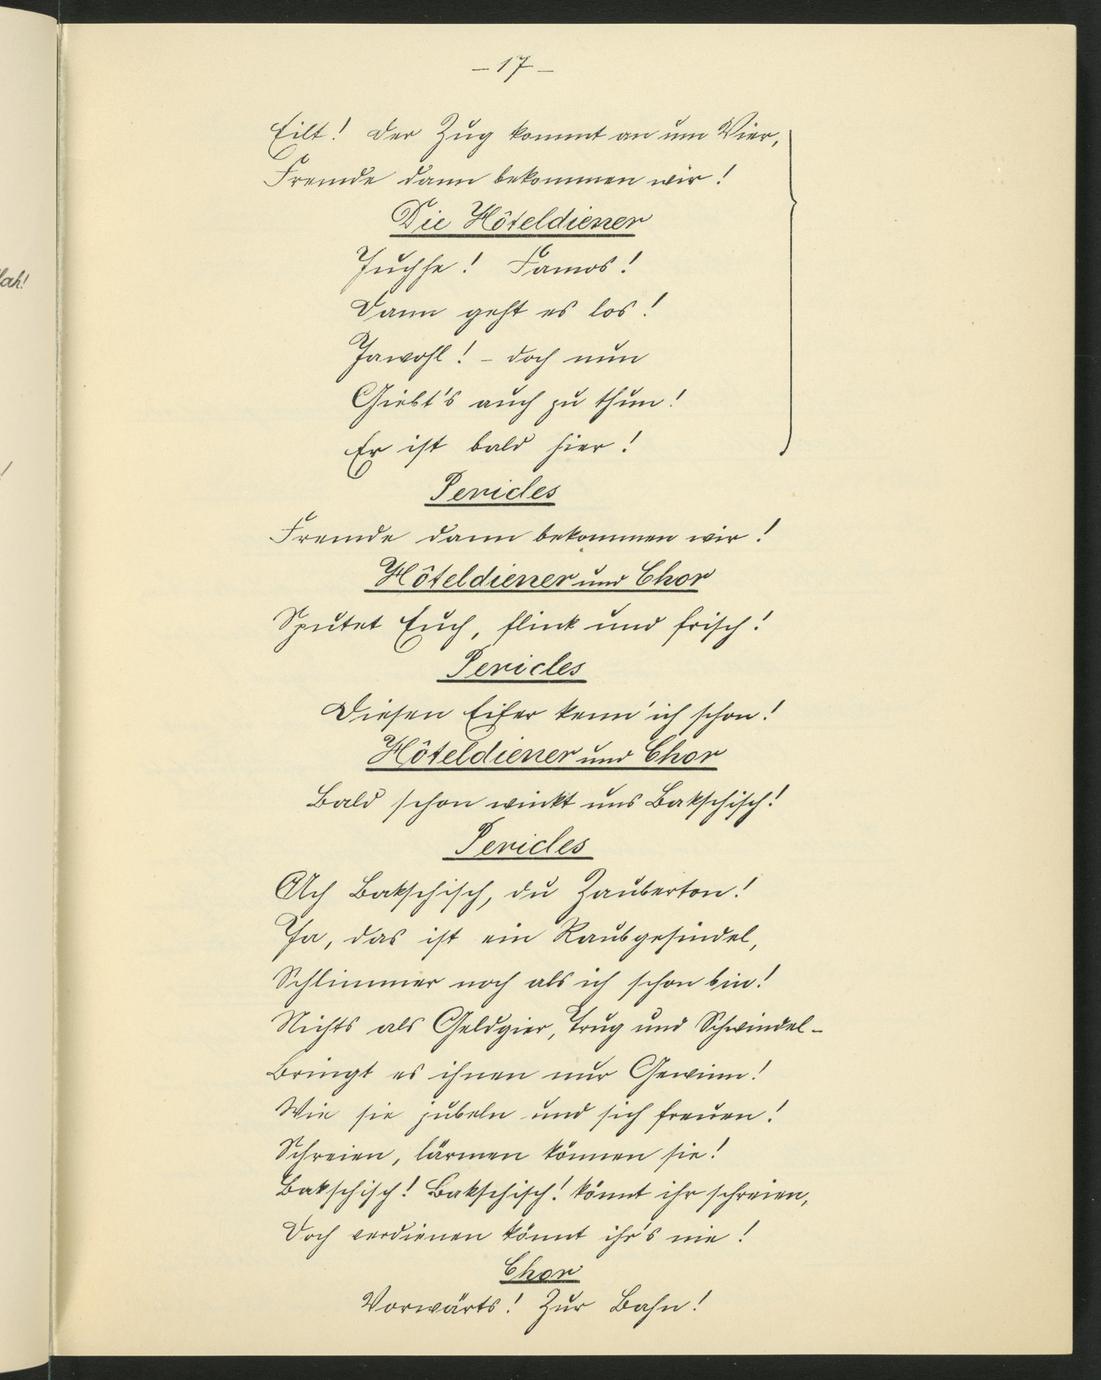 – 17 –
Eilt! Der Zug kommt an um Vier,
Fremde dann bekommen wir!
Die Hôteldiener
Juchhe! Famos!
Dann geht es los!
Jawohl! – doch nun
Giebt's auch zu thun!
Er ist bald hier!
Pericles
Fremde dann bekommen wir!
Hôteldiener und Chor
Sputet Euch, flink und frisch!
Pericles
Diesen Eifer kenn' ich schon!
Hôteldiener und Chor
Bald schon winkt uns Bakschisch!
Pericles
Ach Bakschisch, du Zauberton!
Ja, das ist ein Raubgesindel,
Schlimmer noch als ich schon bin!
Nichts als Geldgier, Trug und Schwindel –
Bringt es ihnen nur Gewinn!
Wie sie jubeln und sich freuen!
Schreien, lärmen können sie!
Bakschisch! Bakschisch! könnt ihr schreien,
Doch verdienen könnt ihr's nie!
Chor
Vorwärts! Zur Bahn!
lah!
!